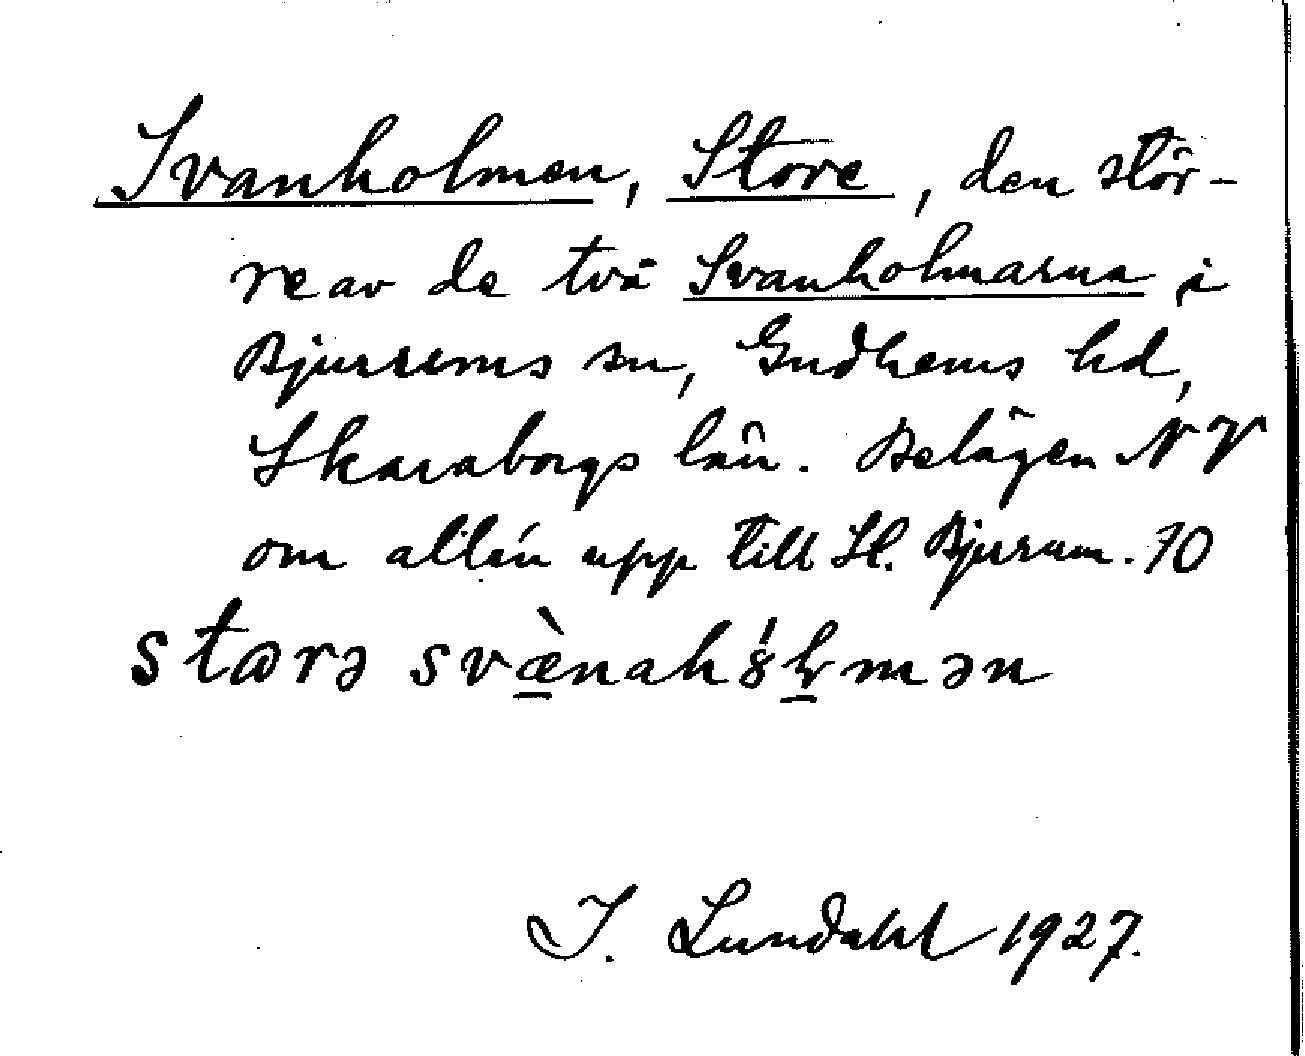 Svanholmen, Store, den stör-
re av de två Svanholmarna i
Bjurums sn, Gudhems hd,
Skaraborgs län. Belägen NV
om allén upp till St. Bjurum. 10
starə svæ̠̀nah
I. Lundahl 1927.